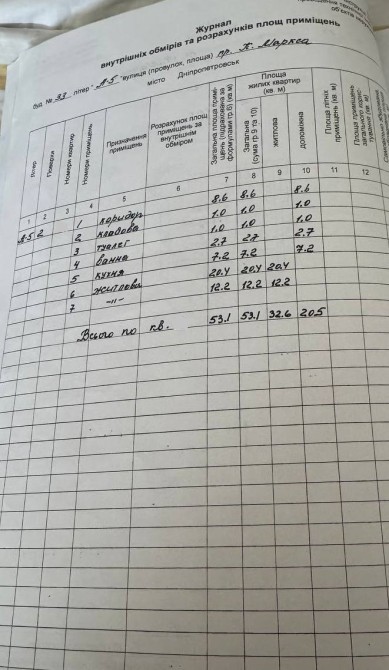 Журнал
внутрішніх обмірів та розрахунків площ приміщень
буд. № 33 літер " А-5 "вулиця (провулок, площа) пр. К. Маркса
місто Дніпропетровськ
Літер
Поверхи
Номери квартир
Номери приміщень
Призначення приміщень
Розрахунок площ приміщень за внутрішнім обміром
Загальна площа приміщень (підрахована за формулами гр.6) (кв м)
Площа жилих квартир (кв. м)
Загальна (сума гр.9 та 10)
житлова
допоміжна
Площа літніх приміщень (кв. м)
1 2 3 4 5 6 7 8 9 10 11 12
А-5 2 1 коридор 8.6 8.6 8.6
2 кладова 1.0 1.0 1.0
3 туалет 1.0 1.0 1.0
4 ванна 2.7 2.7 2.7
5 кухня 7.2 7.2 7.2
6 житлова 20.4 20.4 20.4
7 -"- 12.2 12.2 12.2
Всього по кв. 53.1 53.1 32.6 20.5